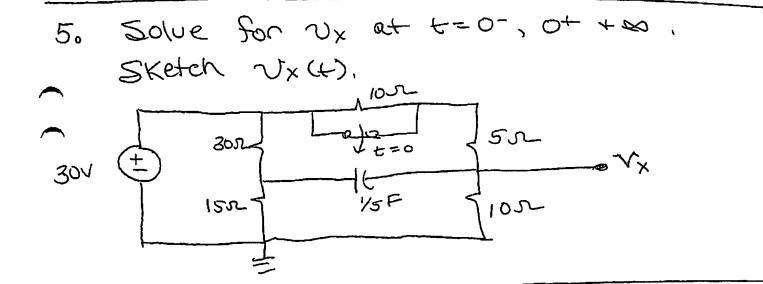 5. Solve for Vx at t=0-, 0+ + ∞.
Sketch Vx(t).
10Ω
30Ω
t=0
5Ω
30V
+-
Vx
15Ω
1/5F
10Ω